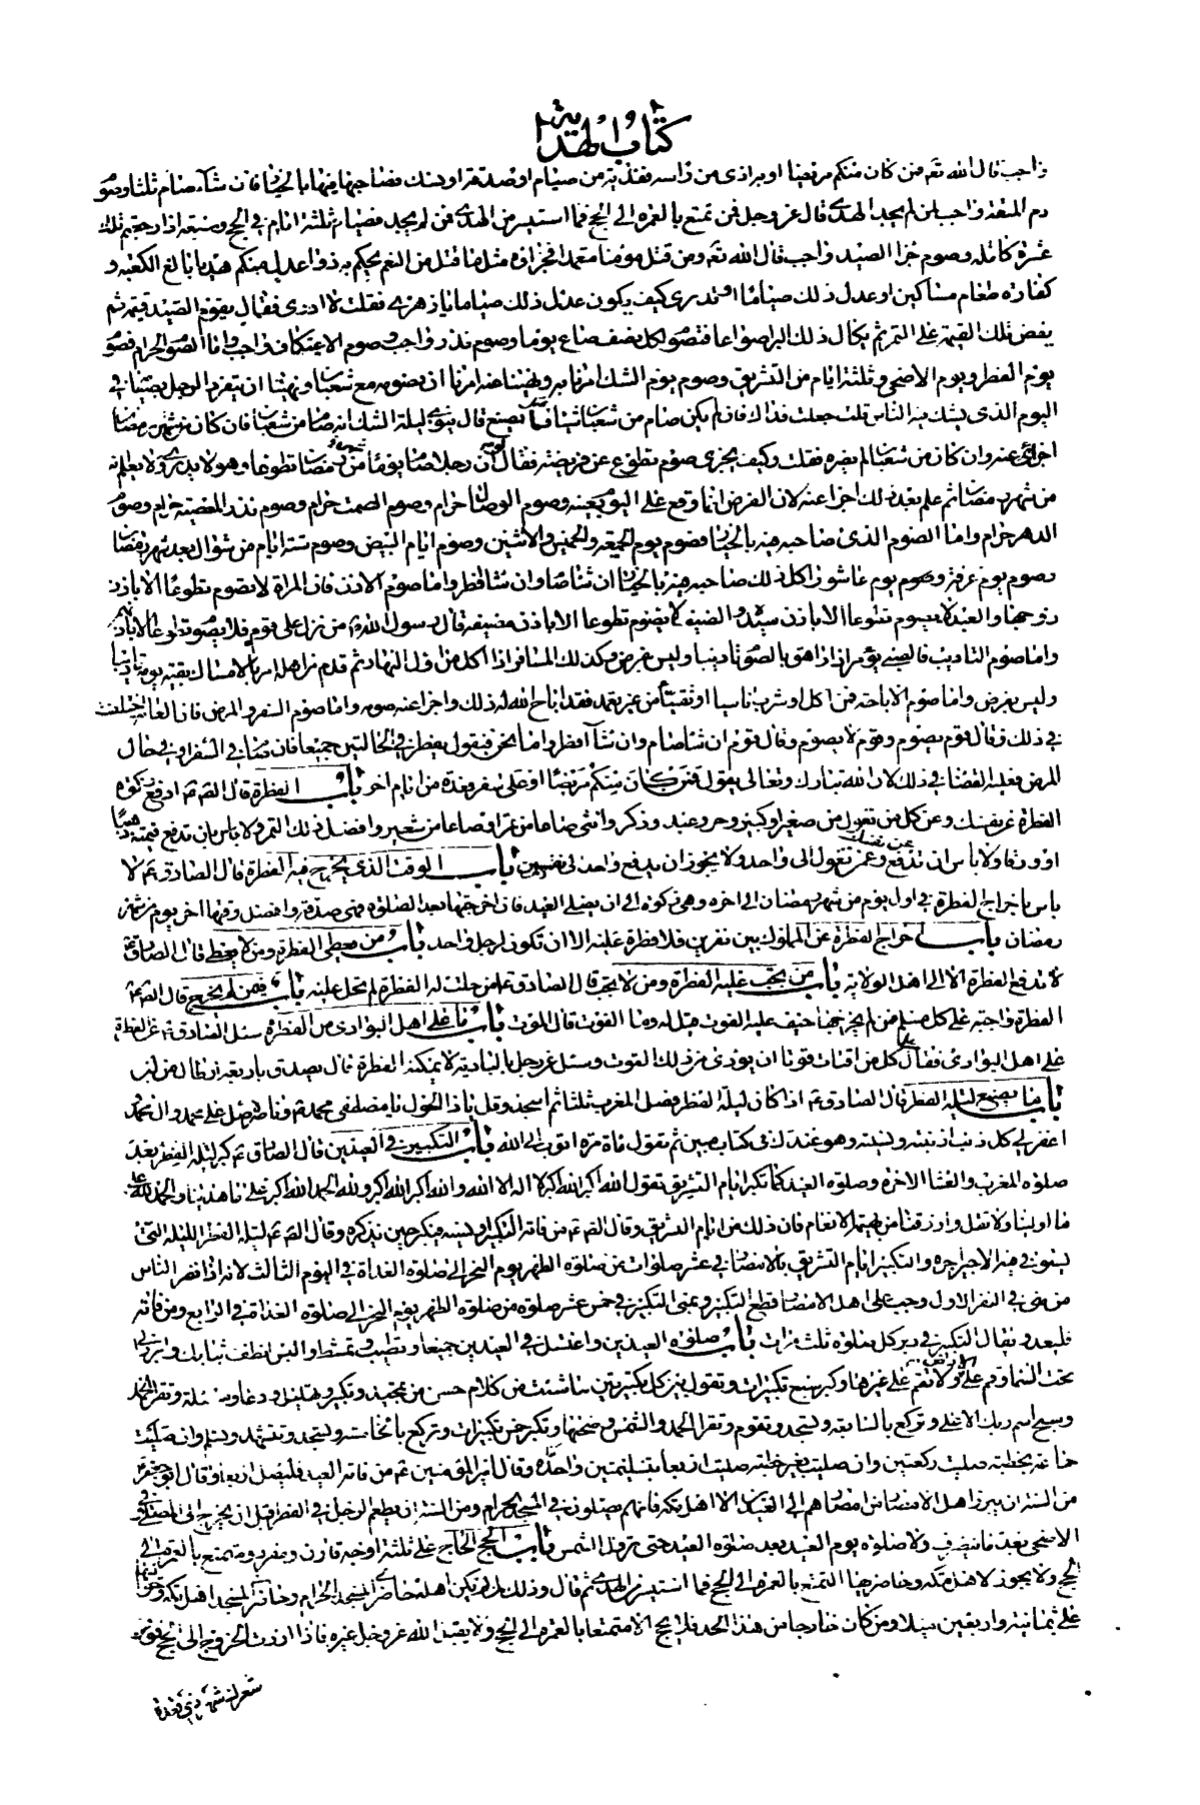 كتاب الهداية
واجب قال الله تع فمن كان منكم مريضا او به اذى من راسه ففدية من صيام او صدقة او نسك فصاحبها فيها بالخيار فان شاء صام ثلثا وصوم
دم المتعة واجب لمن لم يجد الهدى قال عز وجل فمن تمتع بالعمرة الى الحج فما استيسر من الهدى فمن لم يجد فصيام ثلثة ايام في الحج وسبعة اذا رجعتم تلك
عشرة كاملة وصوم جزا الصيد واجب قال الله تع ومن قتله منكم متعمدا فجزاؤه مثل ما قتل من النعم يحكم به ذوا عدل منكم هديا بالغ الكعبة او
كفارة طعام مساكين او عدل ذلك صياما او تدرى كيف يكون عدل ذلك صياما يا زهرى فقلت لا ادرى فقال يقوم الصيد قيمة ثم
يفض تلك القيمة على البر ثم يكال ذلك البر اصواعا فتصوم لكل نصف صاع يوما وصوم نذر واجب وصوم الاعتكاف واجب واما الصوم الحرام فصوم
يوم الفطر ويوم الاضحى وثلثة ايام من التشريق وصوم يوم الشك امرنا به ونهينا عنه امرنا ان نصومه مع شعبان ونهينا ان ينفرد الرجل بصيامه في
اليوم الذى يشك فيه الناس قلت جعلت فداك فان لم يكن صام من شعبان شيئا فما يصنع قال ينوى ليلة الشك انه صام من شعبان فان كان من شهر رمضان
اجزى عنه وان كان من شعبان لم يضره فقلت وكيف يجزى صوم تطوع عن فريضة فقال لو ان رجلا صام يوما من شهر رمضان تطوعا وهو لا يدرى ولا يعلم انه
من شهر رمضان ثم علم بعد ذلك اجزا عنه لان الفرض انما وقع على اليوم بعينه وصوم الوصال حرام وصوم الصمت حرام وصوم نذر المعصية حرام وصوم
الدهر حرام واما الصوم الذى صاحبه فيه بالخيار فصوم يوم الجمعة والخميس والاثنين وصوم ايام البيض وصوم ستة ايام من شوال بعد شهر رمضان
وصوم يوم عرفة وصوم يوم عاشورا كل ذلك صاحبه فيه بالخيار ان شا صام وان شا افطر واما صوم الاذن فان المراة لا تصوم تطوعا الا باذن
زوجها والعبد لا يصوم تطوعا الا باذن سيده والضيف لا يصوم تطوعا الا باذن مضيفه قال رسول الله ص من نزل على قوم فلا يصوم تطوعا الا باذنهم
واما صوم التاديب فالصبى يؤمر اذا راهق بالصوم تاديبا وليس بفرض وكذلك المسافر اذا اكل من اول النهار ثم قدم من اهله امر بالامساك بقية يومه تاديبا
وليس بفرض واما صوم الاباحة فمن اكل او شرب ناسيا او تقيأ من غير تعمد فقد اباح الله له ذلك واجزا عنه صومه واما صوم السفر والمرض فان العامة اختلفت
في ذلك وقال قوم يصوم وقوم لا يصوم وقال قوم ان شا صام وان شا افطر واما نحن فنقول يفطر في الحالتين جميعا فان صام في السفر او في حال
المرض فعليه القضا في ذلك لان الله تبارك وتعالى يقول فمن كان منكم مريضا او على سفر فعدة من ايام اخر باب الفطرة قال الص ع ادفع زكوة
الفطرة عن نفسك وعن كل من تعول من صغير او كبير وحر وعبد وذكر وانثى صاعا من تمر او صاعا من شعير وافضل ذلك التمر ولا باس بان تدفع قيمته ذهبا
او ورقا ولا باس ان تدفع عن نفسك وعمن تعول الى واحد ولا يجوز ان يدفع واحد الى نفسين باب الوقت الذى يخرج فيه الفطرة قال الصادق ع لا
باس باخراج الفطرة في اول يوم من شهر رمضان الى اخره وهى زكوة الى ان يصلى العيد فان اخرجتها بعد الصلوة فهى صدقة وافضل وقتها اخر يوم من شهر
رمضان باب اخراج الفطرة عن المملوك بين نفرين فلا فطرة عليه الا ان تكون لرجل واحد باب من يعطى الفطرة ومن لا يعطى قال الصادق ع
لا تدفع الفطرة الا الى اهل الولاية باب من يجب عليه الفطرة ومن لا يجب قال الصادق ع من حلت له الفطرة لم تحل عليه باب فيمن لم يخرج قال الص ع
الفطرة واجبة على كل مسلم فمن لم يخرجها خيف عليه الفوت فقيل له وما الفوت قال الموت باب ما على اهل البوادى من الفطرة سئل الصادق ع عن الفطرة
على اهل البوادى فقال على كل من اقتات قوتا ان يؤدى من ذلك القوت وسئل عن رجل بالبادية لا يمكنه الفطرة قال يصدق باربعة ارطال من لبن
باب ما يصنع ليلة الفطر قال الصادق ع اذا كان ليلة الفطر فصل المغرب ثلثا ثم اسجد وقل يا ذا الحول يا مصطفى محمد ص وناصره صل على محمد وال محمد و
اغفر لى كل ذنب اذنبته ونسيته وهو عندك في كتاب مبين ثم تقول مائة مرة اتوب الى الله باب التكبير في العيدين قال الصادق ع كبر ليلة الفطر بعد
صلوة المغرب والعشا الاخرة وصلوة العيد كما تكبر ايام التشريق تقول الله اكبر الله اكبر لا اله الا الله والله اكبر الله اكبر ولله الحمد الله اكبر على ما هدينا والحمد لله على
ما اولينا ولا تقل وارزقنا من بهيمة الانعام فان ذلك من ايام التشريق وقال الص ع من فاته التكبير او نسيه فيكبر حين يذكره وقال الص ع ليلة الفطر الليلة التى
يستوفى فيه الاجير اجره والتكبير ايام التشريق بالامصار في عشر صلوات من صلوة الظهر يوم النحر الى صلوة الغداة في اليوم الثالث لانه اذا نفر الناس
من منى في النفر الاول وجب على اهل الامصار قطع التكبير وبمنى التكبير في خمس عشر صلوة من صلوة الظهر يوم النحر الى صلوة الغداة في الرابع ومن فاته
فليعد ويقال التكبير في دبر كل صلوة ثلث مرات باب صلوة العيدين واغتسل في العيدين جميعا وتطيب وتمشط والبس انظف ثيابك وابرز الى
تحت السما وقم على الارض ولا تقم على غيرها وكبر سبع تكبيرات وتقول بين كل تكبيرتين ما شئت من كلام حسن من تحميد وتكبير وتهليل ودعا ومسئلة وتقرا الحمد
وسبح اسم ربك الاعلى وتركع بالسابعة وتسجد وتقوم وتقرا الحمد والشمس وضحيها وتكبر خمس تكبيرات وتركع بالخامسة وتسجد وتتشهد وتسلم وان صليت
جماعة بخطبة صليت ركعتين وان صليت بغير خطبة صليت اربعا بتسليمة واحدة وقال امير المؤمنين ع من فاته العيد فليصل اربعا وقال ابو جعفر ع
من السنة ان يبرز اهل الامصار من امصارهم الى العيدين الا اهل مكة فانهم يصلون في المسجد الحرام ومن السنة ان يطعم الرجل في الفطر قبل ان يخرج الى المصلى وفي
الاضحى بعد ما ينصرف ولا صلوة يوم العيد بعد صلوة العيد حتى تزول الشمس باب الحج الحاج على ثلثة اوجه قارن ومفرد ومتمتع بالعمرة الى
الحج ولا يجوز لاهل مكة وحاضريها التمتع بالعمرة الى الحج فما استيسر من الهدى ثم قال وذلك لمن لم يكن اهله حاضرى المسجد الحرام وحاضر المسجد اهل مكة وحواليها
على ثمانية واربعين ميلا ومن كان خارجا من هذا الحد فلا يحج الا متمتعا بالعمرة الى الحج ولا يقبل الله عز وجل غيره فاذا اردت الخروج الى الحج فوفر
شعرك شهر ذى قعدة